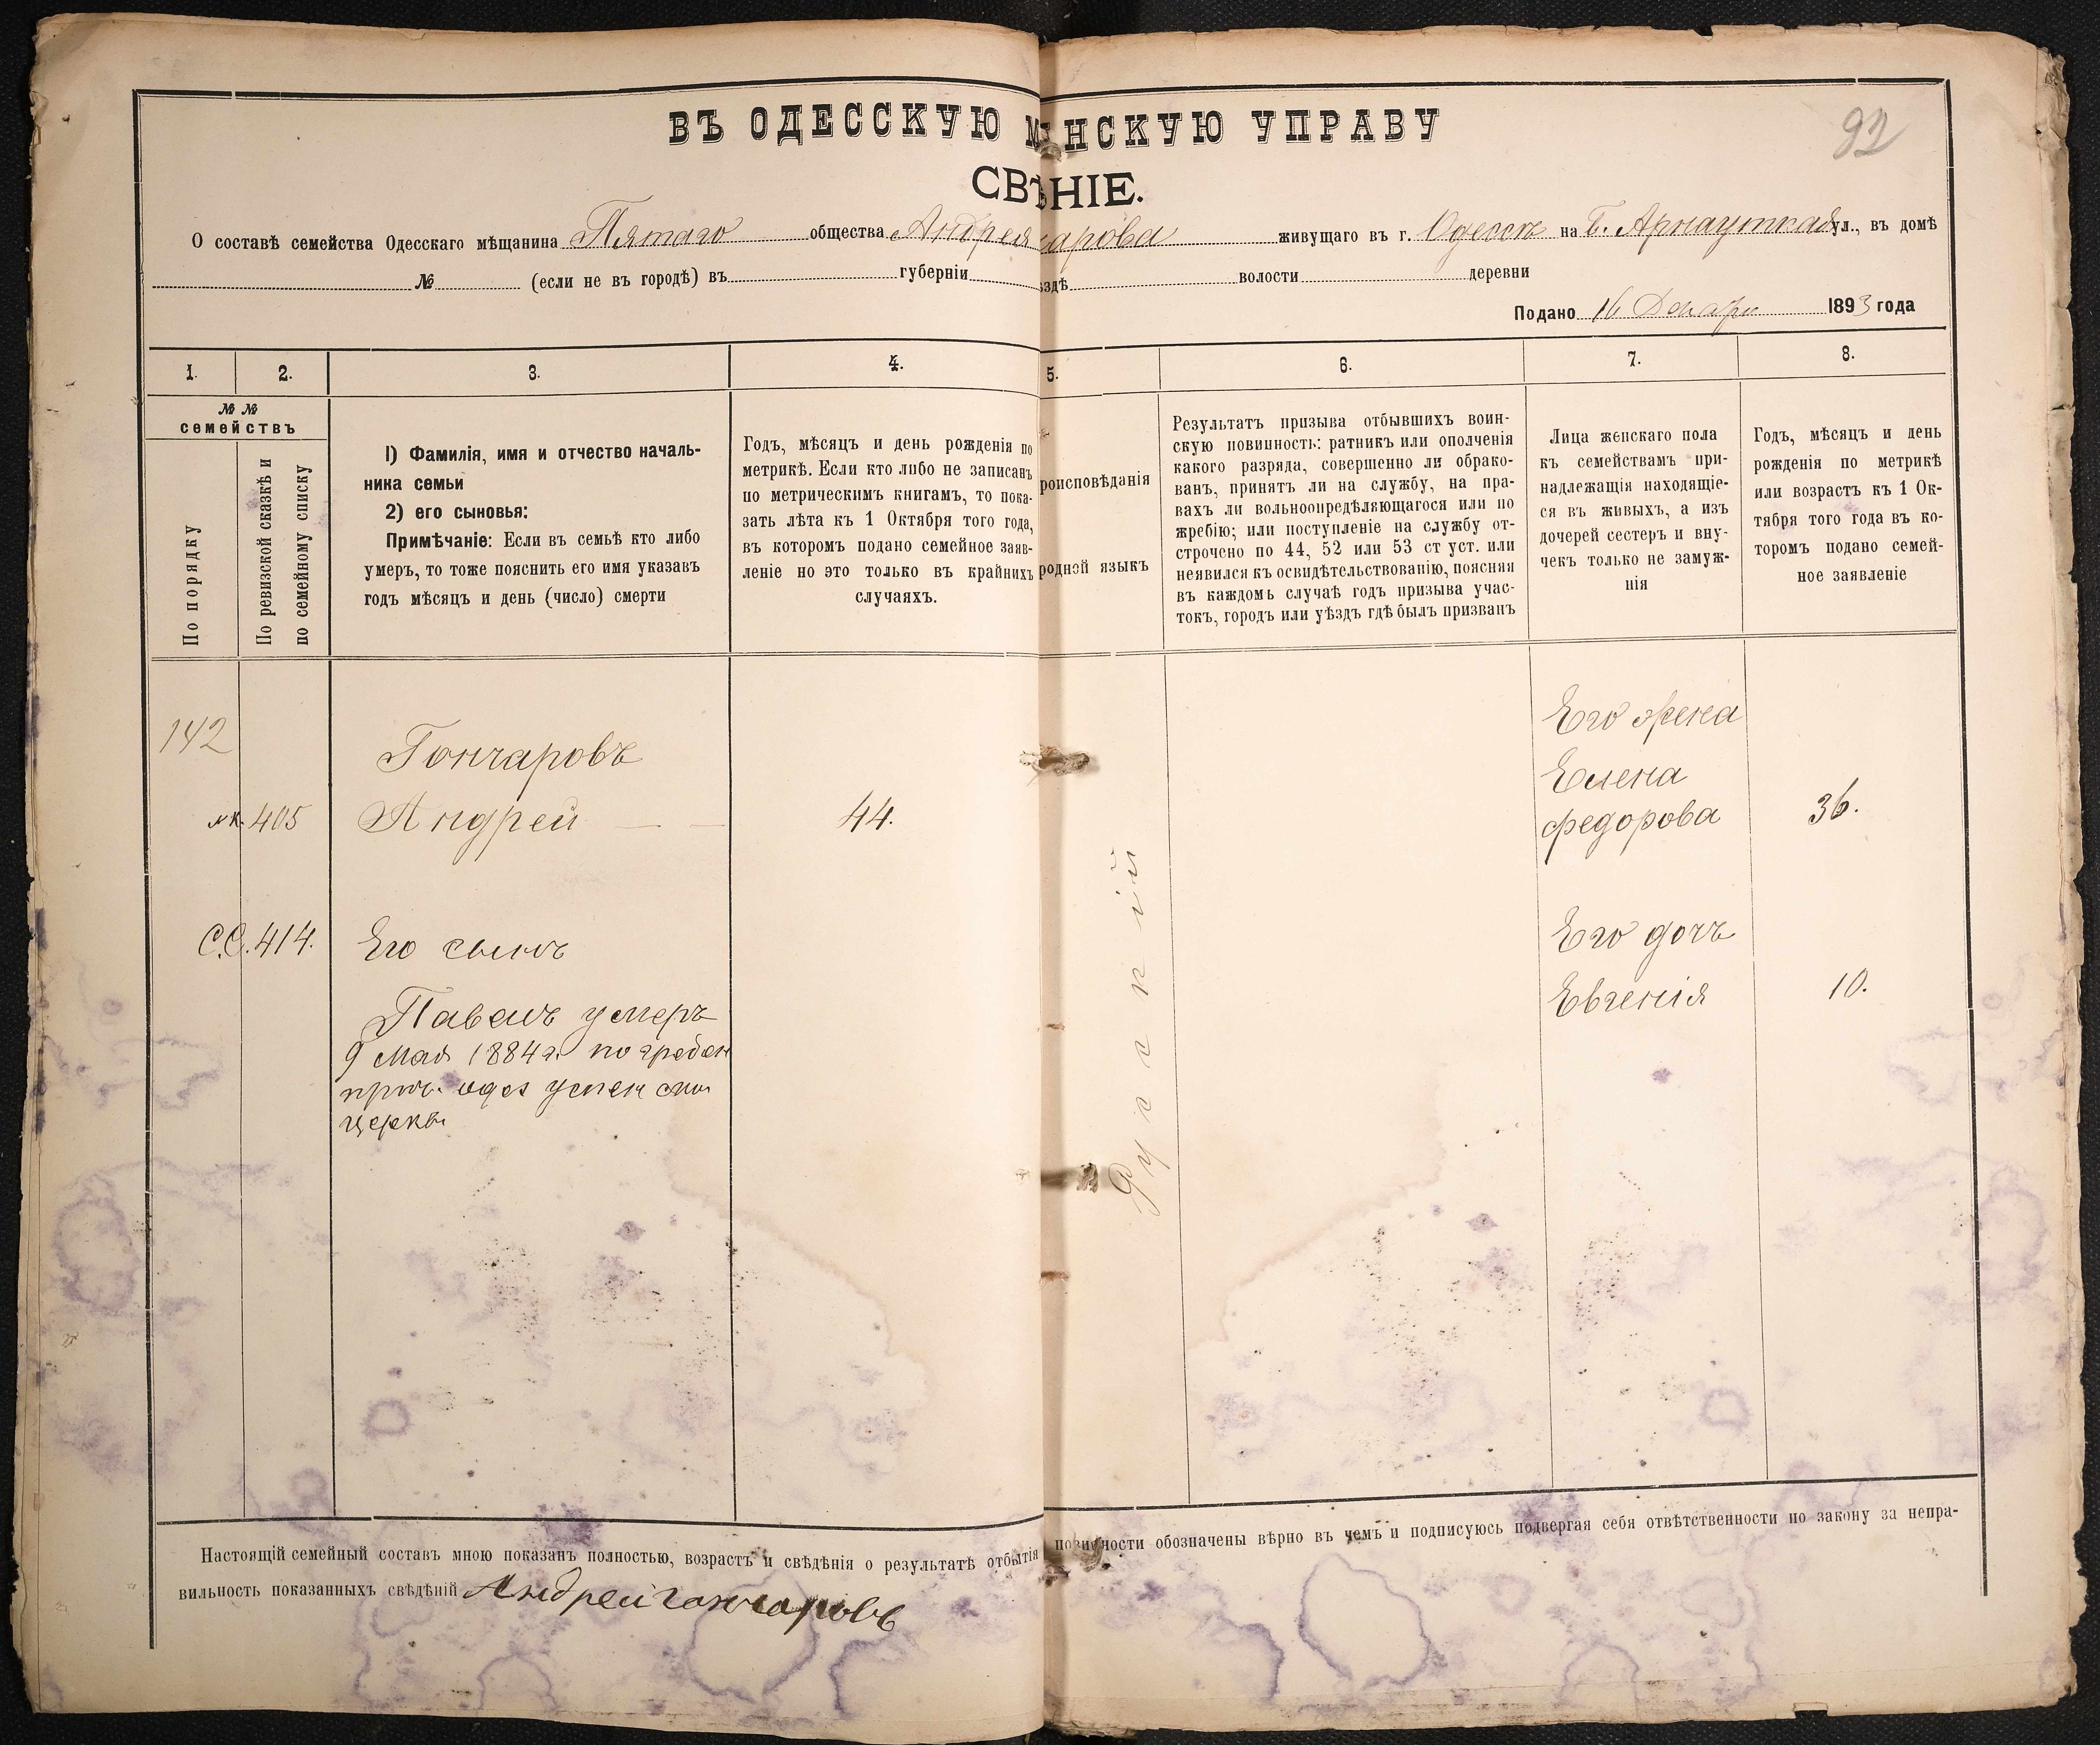 92
ВЪ ОДЕССКУЮ НСКУЮ УПРАВУ
СВѢНІЕ.
О составѣ семейства Одесскаго мѣщанина Пятаго общества Андрея арова живущаго въ г. Одессѣ на Б. Арнаутская ул., въ домѣ
№ (если не въ городѣ) въ губерніи ѣздѣ волости деревни
Подано 16 1893 года
1. 2. 3. 4. 5. 6. 7. 8.
№№
семействъ
По порядку
По ревизской сказкѣ и
по семейному списку
1) Фамилія, имя и отчество началь-
ника семьи
2) его сыновья:
Примѣчаніе: Если въ семьѣ кто либо
умеръ, то тоже пояснить его имя указавъ
годъ мѣсяцъ и день (число) смерти
Годъ, мѣсяцъ и день рожденія по
метрикѣ. Если кто либо не записанъ
по метрическимъ книгамъ, то пока-
зать лѣта къ 1 Октября того года,
въ которомъ подано семейное заяв-
леніе но это только въ крайнихъ
случаяхъ.
роисповѣданія
родной языкъ
Результатъ призыва отбывшихъ воин-
скую повинность: ратникъ или ополченія
какого разряда, совершенно ли обрако-
ванъ, принятъ ли на службу, на пра-
вахъ ли вольноопредѣляющагося или по
жребію; или поступленіе на службу от-
строчено по 44, 52 или 53 ст уст. или
неявился къ освидѣтельствованію, поясняя
въ каждомъ случаѣ годъ призыва учас-
токъ, городъ или уѣздъ гдѣ былъ призванъ
Лица женскаго пола
къ семействамъ при-
надлежащія находящіе-
ся въ живыхъ, а изъ
дочерей сестеръ и вну-
чекъ только не замуж-
нія
Годъ, мѣсяцъ и день
рожденія по метрикѣ
или возрастъ къ 1 Ок-
тября того года въ ко-
торомъ подано семей-
ное заявленіе
142
Гончаровъ
405 Андрей — — 44.
С.С. 414. Его сынъ
Павелъ умеръ
9 Мая 1884 г. погребен
прич. одес успенской
церкви
Русскій
Его жена
Елена
федорова 36.
Его дочь
Евгенія 10.
Настоящій семейный составъ мною показанъ полностью, возрастъ и свѣдѣнія о результатѣ отбытія повинности обозначены вѣрно въ чемъ и подписуюсь подвергая себя отвѣтственности по закону за непра-
вильность показанныхъ свѣдѣній Андрей гончаровъ